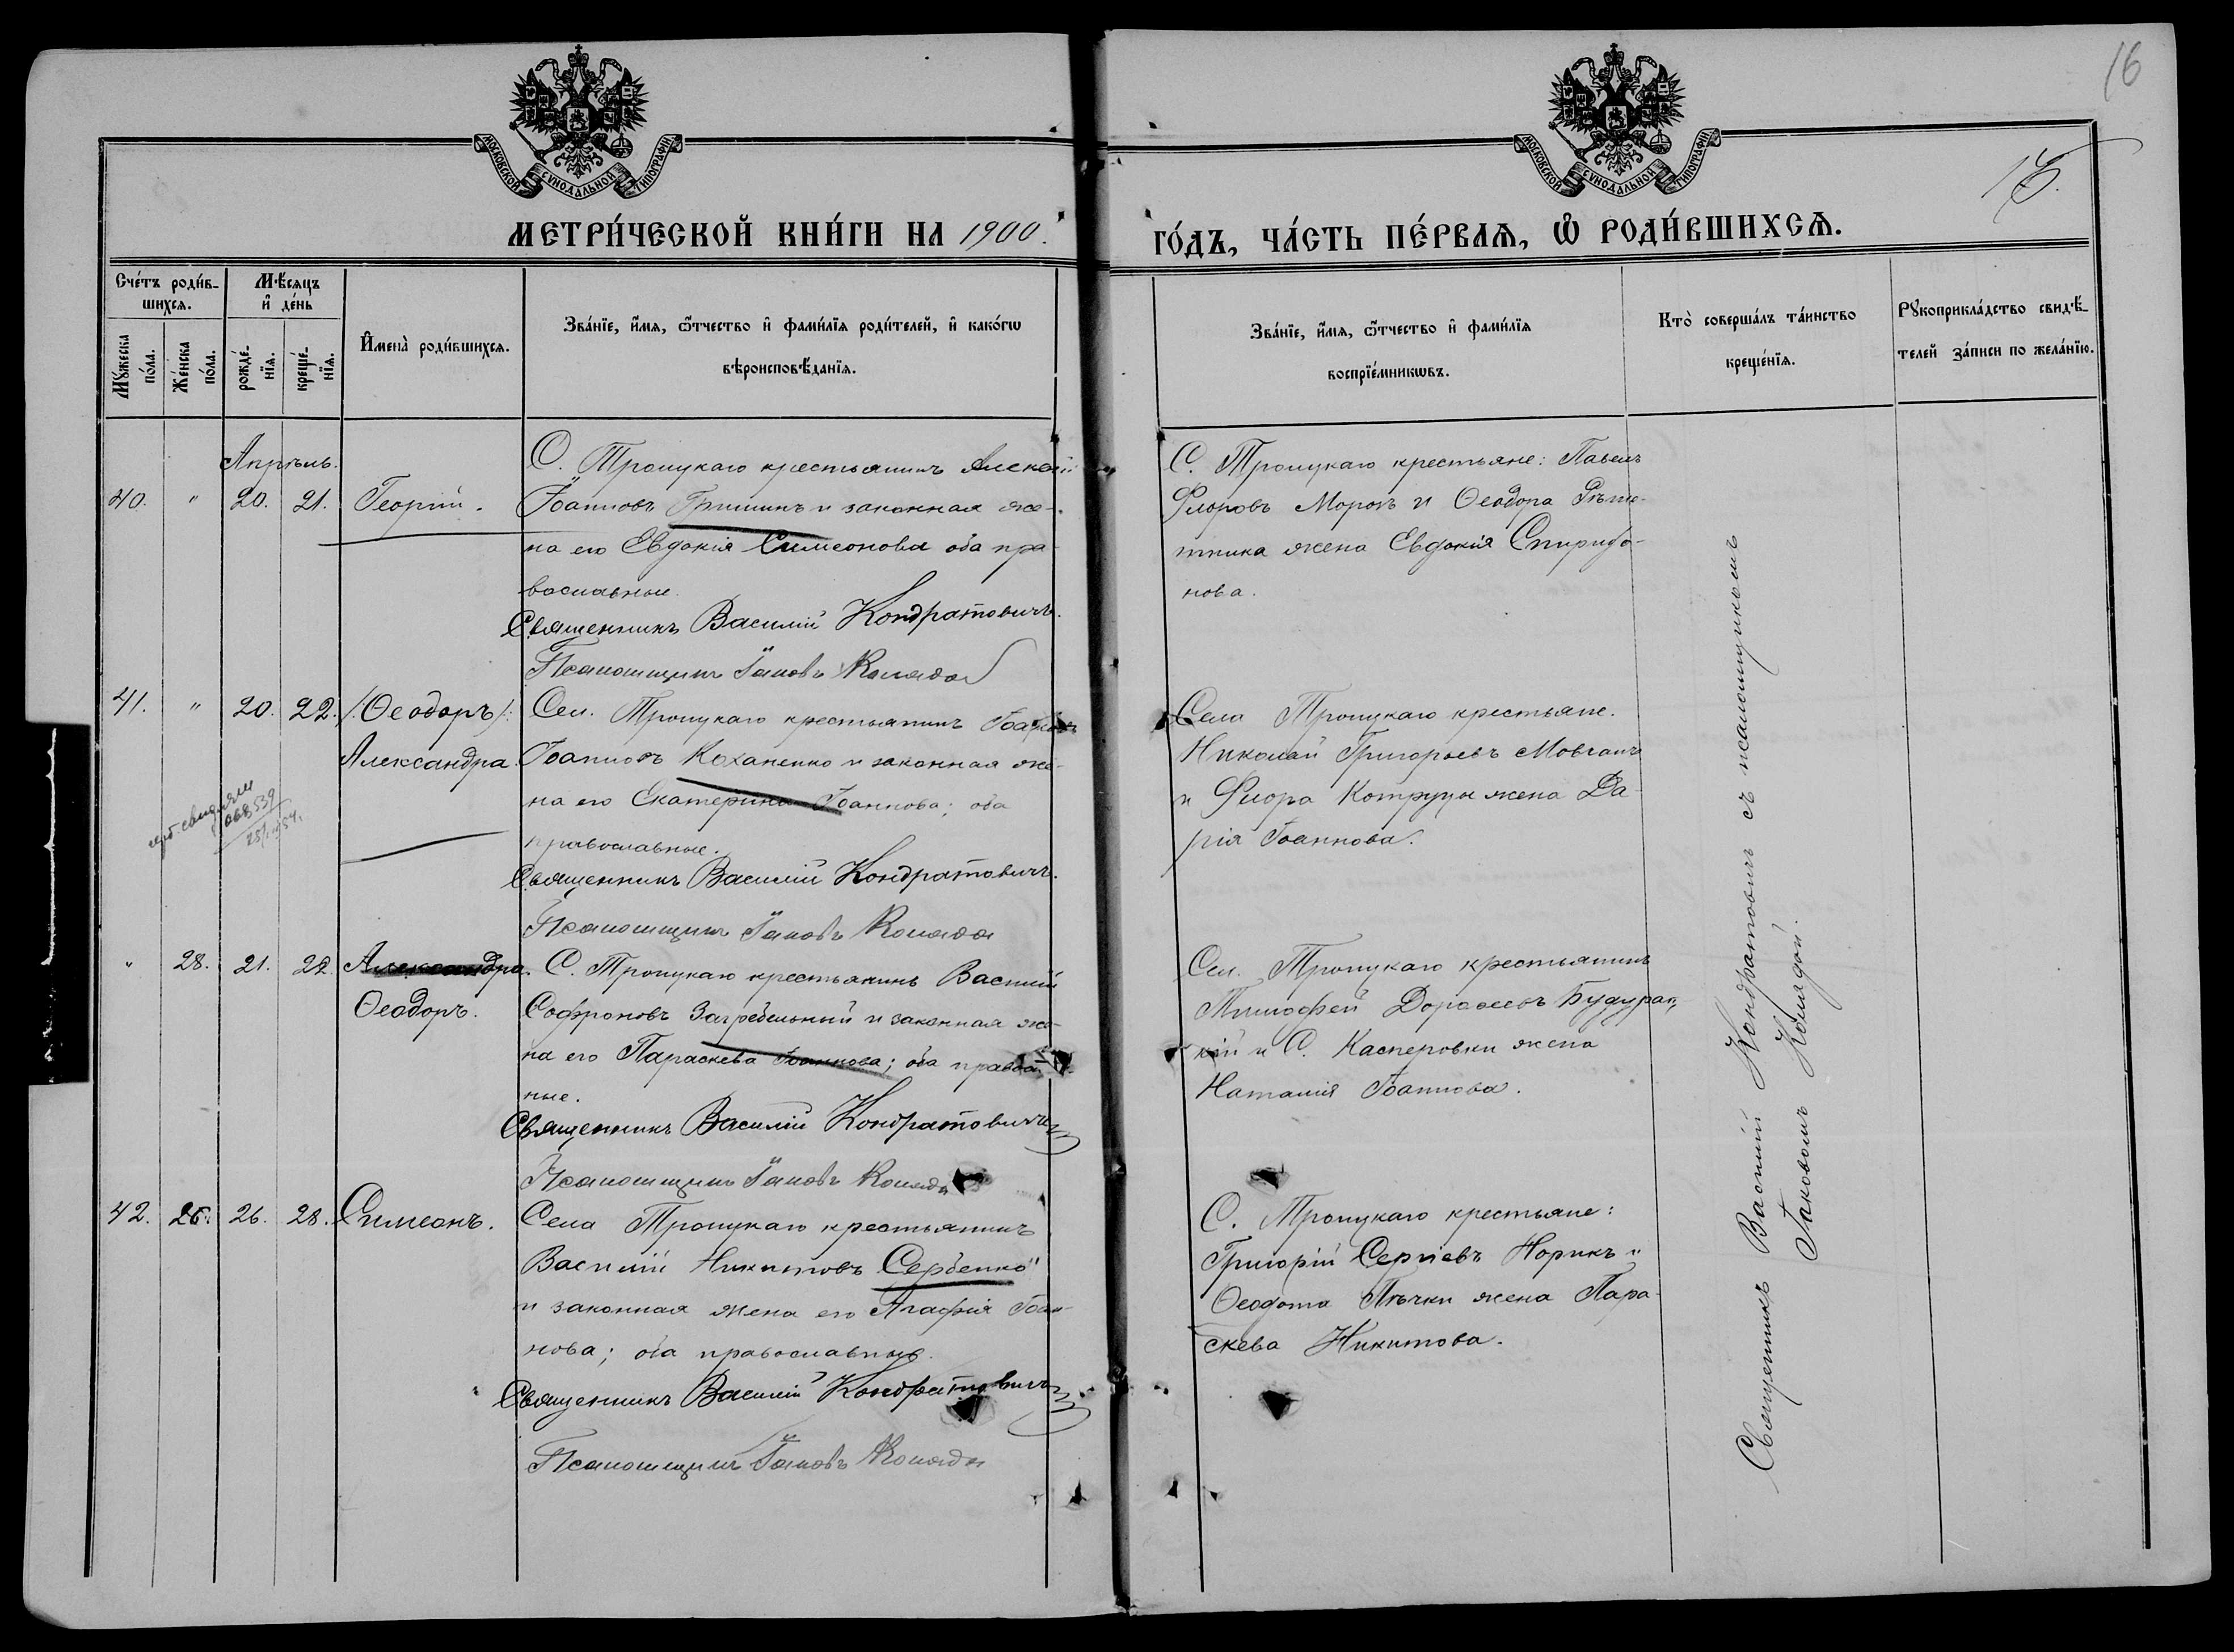 16
МОСКОВСКОЙ СѴНОДАЛЬНОЙ ТИПОГРАФІИ
МОСКОВСКОЙ СѴНОДАЛЬНОЙ ТИПОГРАФІИ
МЕТРИ́ЧЕСКОЙ КНИ́ГИ НА 1900.
ГО́ДЪ, ЧА́СТЬ ПЕ́РВАѦ, Ѽ РОДИ́ВШИХСѦ.
Сче́тъ роди́в-
шихсѧ.
Мꙋ́жеска по́ла.
Же́нска по́ла.
Мѣ́сѧцъ
и҆ де́нь
рожде́-нїѧ.
креще́-нїѧ.
И҆мена̀ роди́вшихсѧ.
Зва́нїе, и҆́мѧ, ѻ҆́тчество и҆ фами́лїѧ роди́телей, и҆ како́гѡ
вѣроисповѣ́данїѧ.
Зва́нїе, и҆́мѧ, ѻ҆́тчество и҆ фами́лїѧ
воспрїе́мникѡвъ.
Кто̀ соверша́лъ та́инство
креще́нїѧ.
Рꙋкоприкла́дство свидѣ́-
телей за́писи по жела́нїю.
Апрѣль.
40. " 20. 21. Георгій.
С. Троицкаго крестьянинъ Алексѣй
Іоанновъ Гришинъ и законная же-
на его Евдокія Симеонова оба пра-
вославные.
Священникъ Василій Кондратовичъ.
Псаломщикъ Іаковъ Коляда
С. Троицкаго крестьяне: Павелъ
Флоровъ Морозъ и Ѳеодора Рѣше-
тника жена Евдокія Спиридо-
нова.
41. " 20. 22. /:Ѳеодоръ/:
Александра.
Сел. Троицкаго крестьянинъ
Іоанновъ Коханенко и законная же-
на его Екатерина Іоаннова; оба
православные.
Священникъ Василій Кондратовичъ.
Псаломщикъ Іаковъ Коляда
Села Троицкаго крестьяне.
Николай Григорьевъ Мовчанъ
и Флора жена Да-
рія Іоаннова.
" 28. 21. 22. Александра.
Ѳеодоръ.
С. Троицкаго крестьянинъ Василій
Софроновъ Загребельный и законная же-
на его Параскева Іоаннова; оба правосл
ные.
Священникъ Василій Кондратовичъ
Псаломщикъ Іаковъ Коляда
Сел. Троицкаго крестьянинъ
Тимофей
и С. Касперовки жена
Наталія Іоаннова.
42. 26. 28. Симеонъ.
Села Троицкаго крестьянинъ
Василій Никитовъ Сербенко
и законная жена его Агафія Іоан-
нова; оба православные.
Священникъ Василій Кондратовичъ
Псаломщикъ Іаковъ Коляда
С. Троицкаго крестьяне:
Григорій Сергіевъ Норикъ и
Ѳеодота жена Пара-
скева Никитова.
Священникъ Василій Кондратовичъ съ псаломщикомъ
Іаковомъ Колядой.